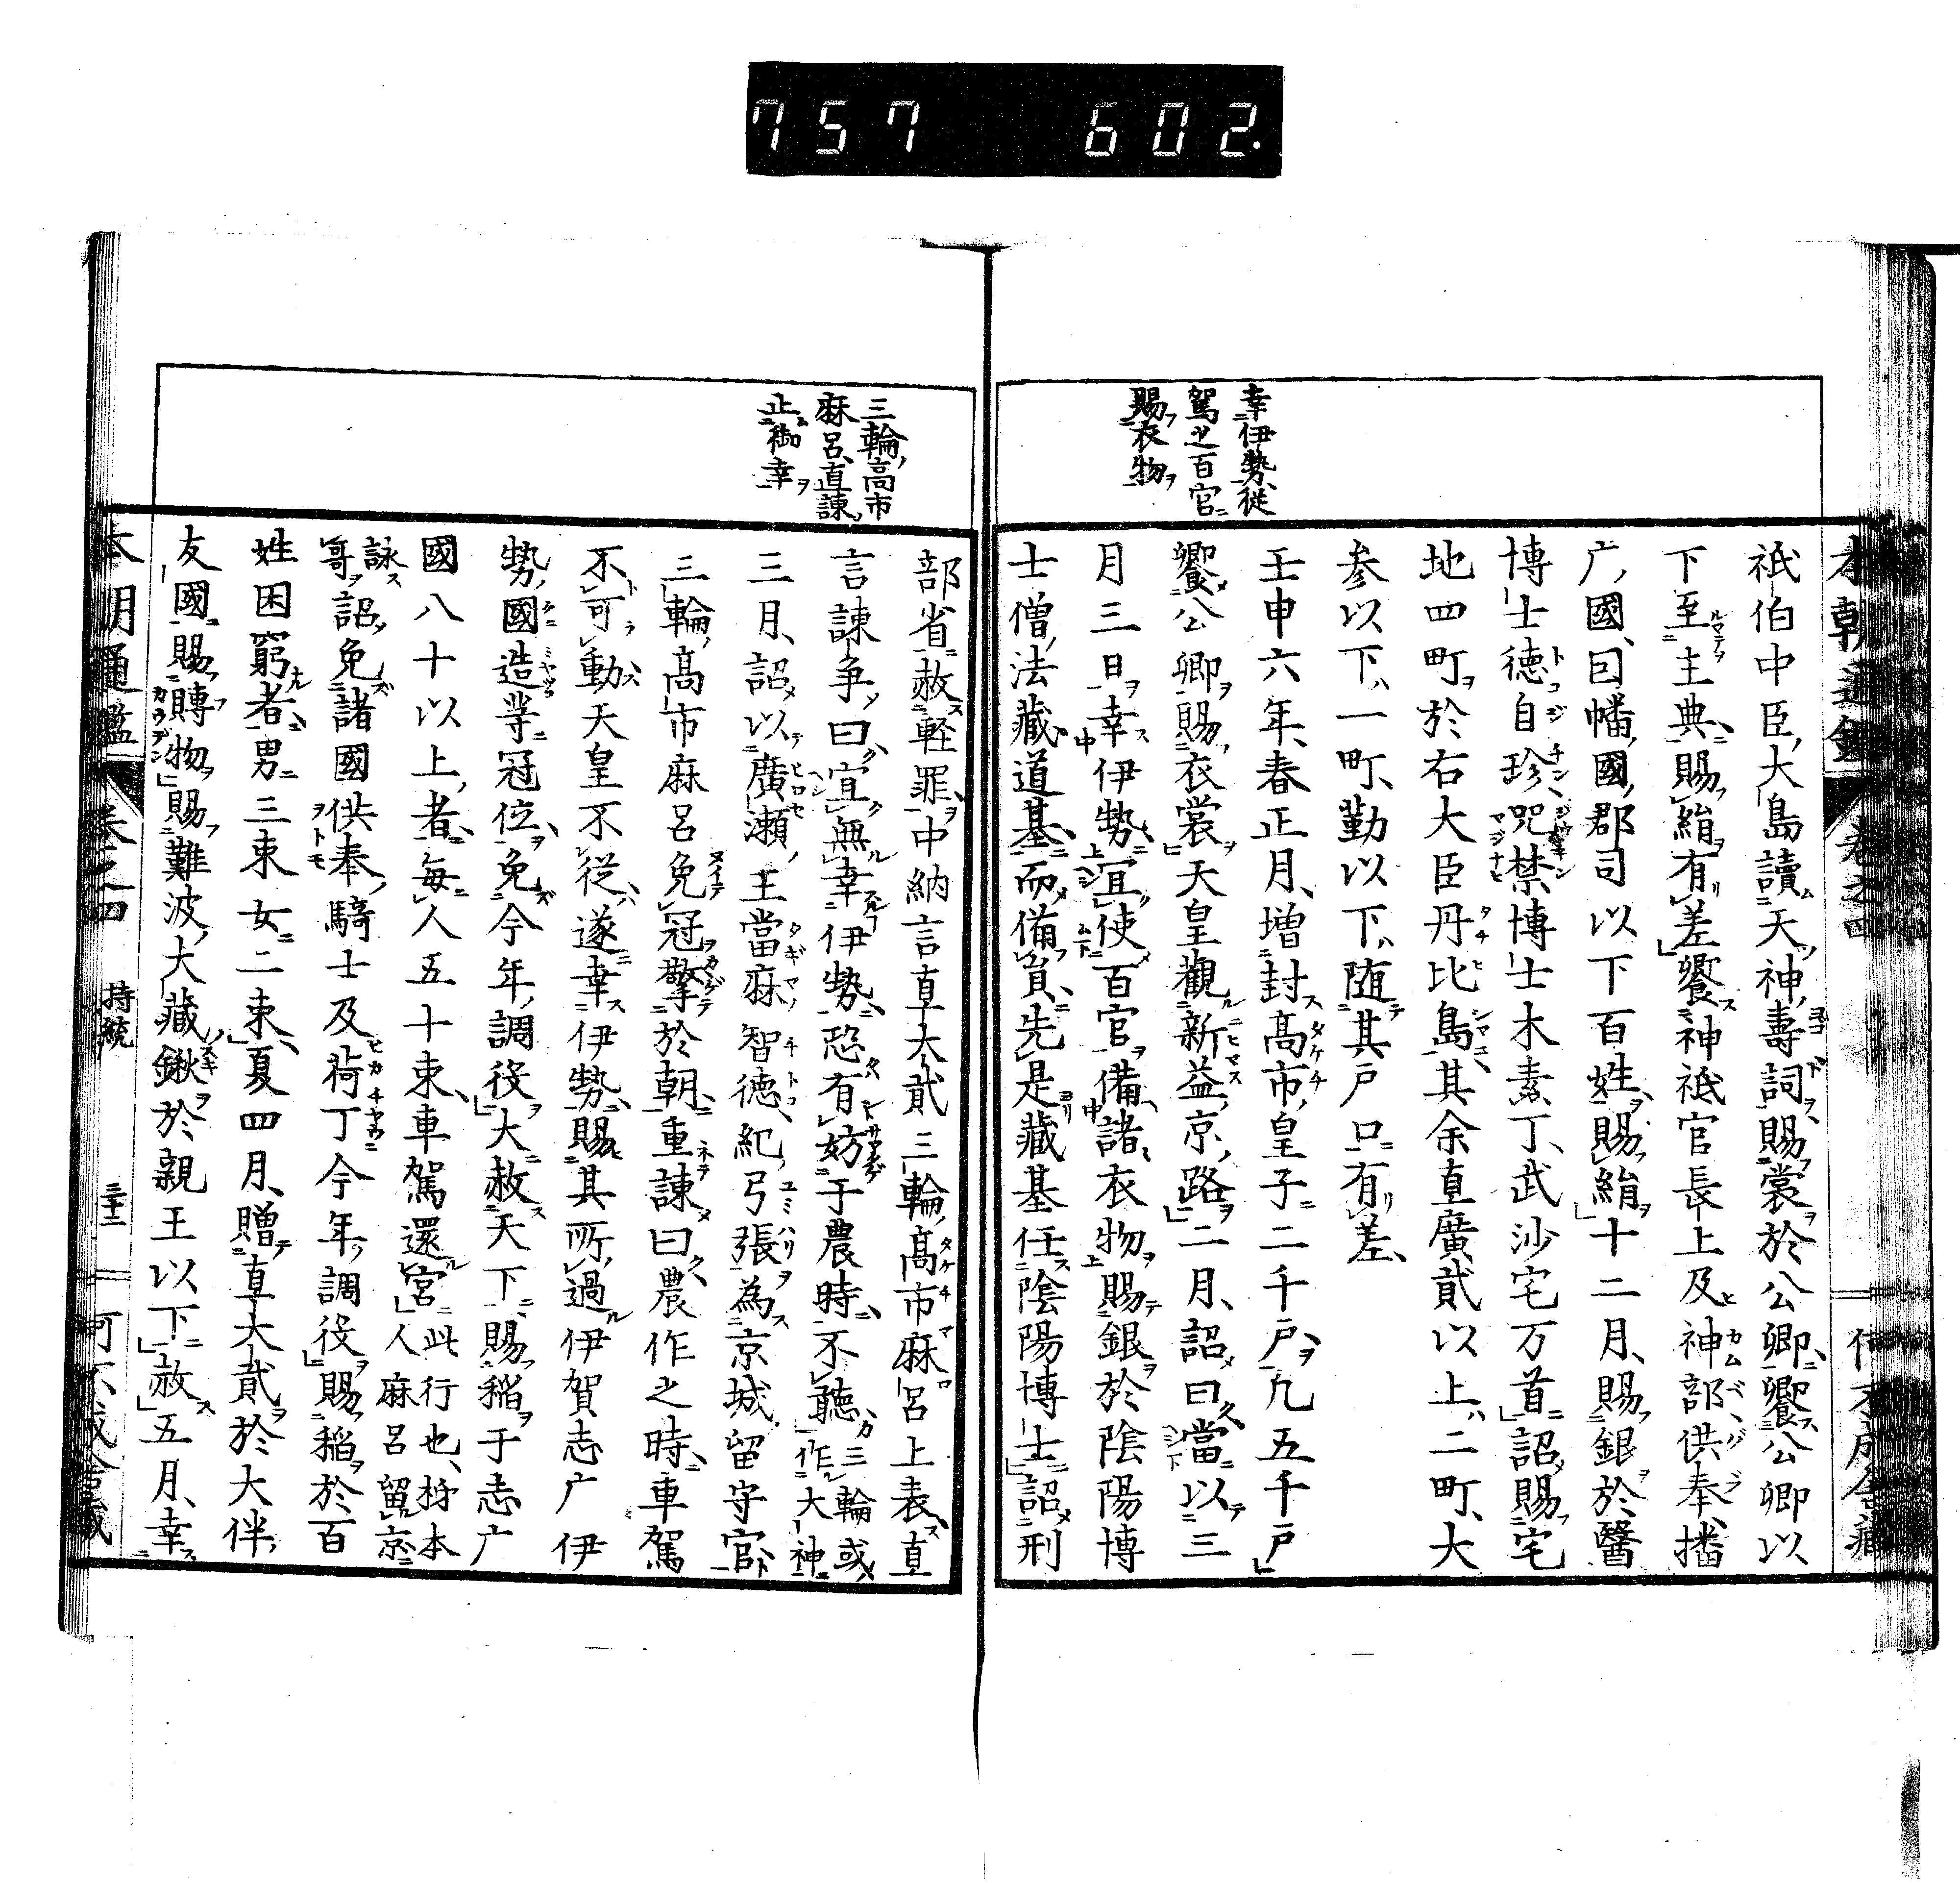 757 602.
幸伊勢從
駕之百官
賜衣物
本朝通鑑 卷之四
祇伯中臣大島讀天神壽詞賜裳於公卿饗公卿以
下至主典賜絹有差饗神祇官長上及神部供奉播
广國因幡國郡司以下百姓賜絹十二月賜銀於醫
博士德自珍咒禁博士木素丁武沙宅万首詔賜宅
地四町於右大臣丹比島其余直廣貳以上二町大
参以下一町勤以下随其戸口有差
壬申六年春正月増封髙市皇子二千戸九五千戸
饗公卿賜衣裳天皇觀新益京路二月詔曰當以三
月三日幸伊勢宜使百官備諸衣物賜銀於陰陽博
士僧法藏道基而備員先是藏基任陰陽博士詔刑
三輪高市
麻呂直諫
止御幸
部省赦軽罪中納言直大貳三輪髙市麻呂上表直
言諫争曰宜無幸伊勢恐有妨于農時不聴三輪或作大神
三月詔以廣瀬王當麻智徳紀弓張為京城留守官
三輪髙市麻呂免冠擎於朝重諫曰農作之時車駕
不可動天皇不從遂幸伊勢賜其所過伊賀志广伊
勢國造等冠位免今年調役大赦天下賜稲于志广
國八十以上者毎人五十束車駕還宮此行也柿本人麻呂留京
詠哥詔免諸國供奉騎士及荷丁今年調役賜稲於百
姓困窮者男三束女二束夏四月贈直大貳於大伴
友國賜賻物賜難波大藏鍬於親王以下赦五月幸
本朝通鑑 卷之四 持統 三十二